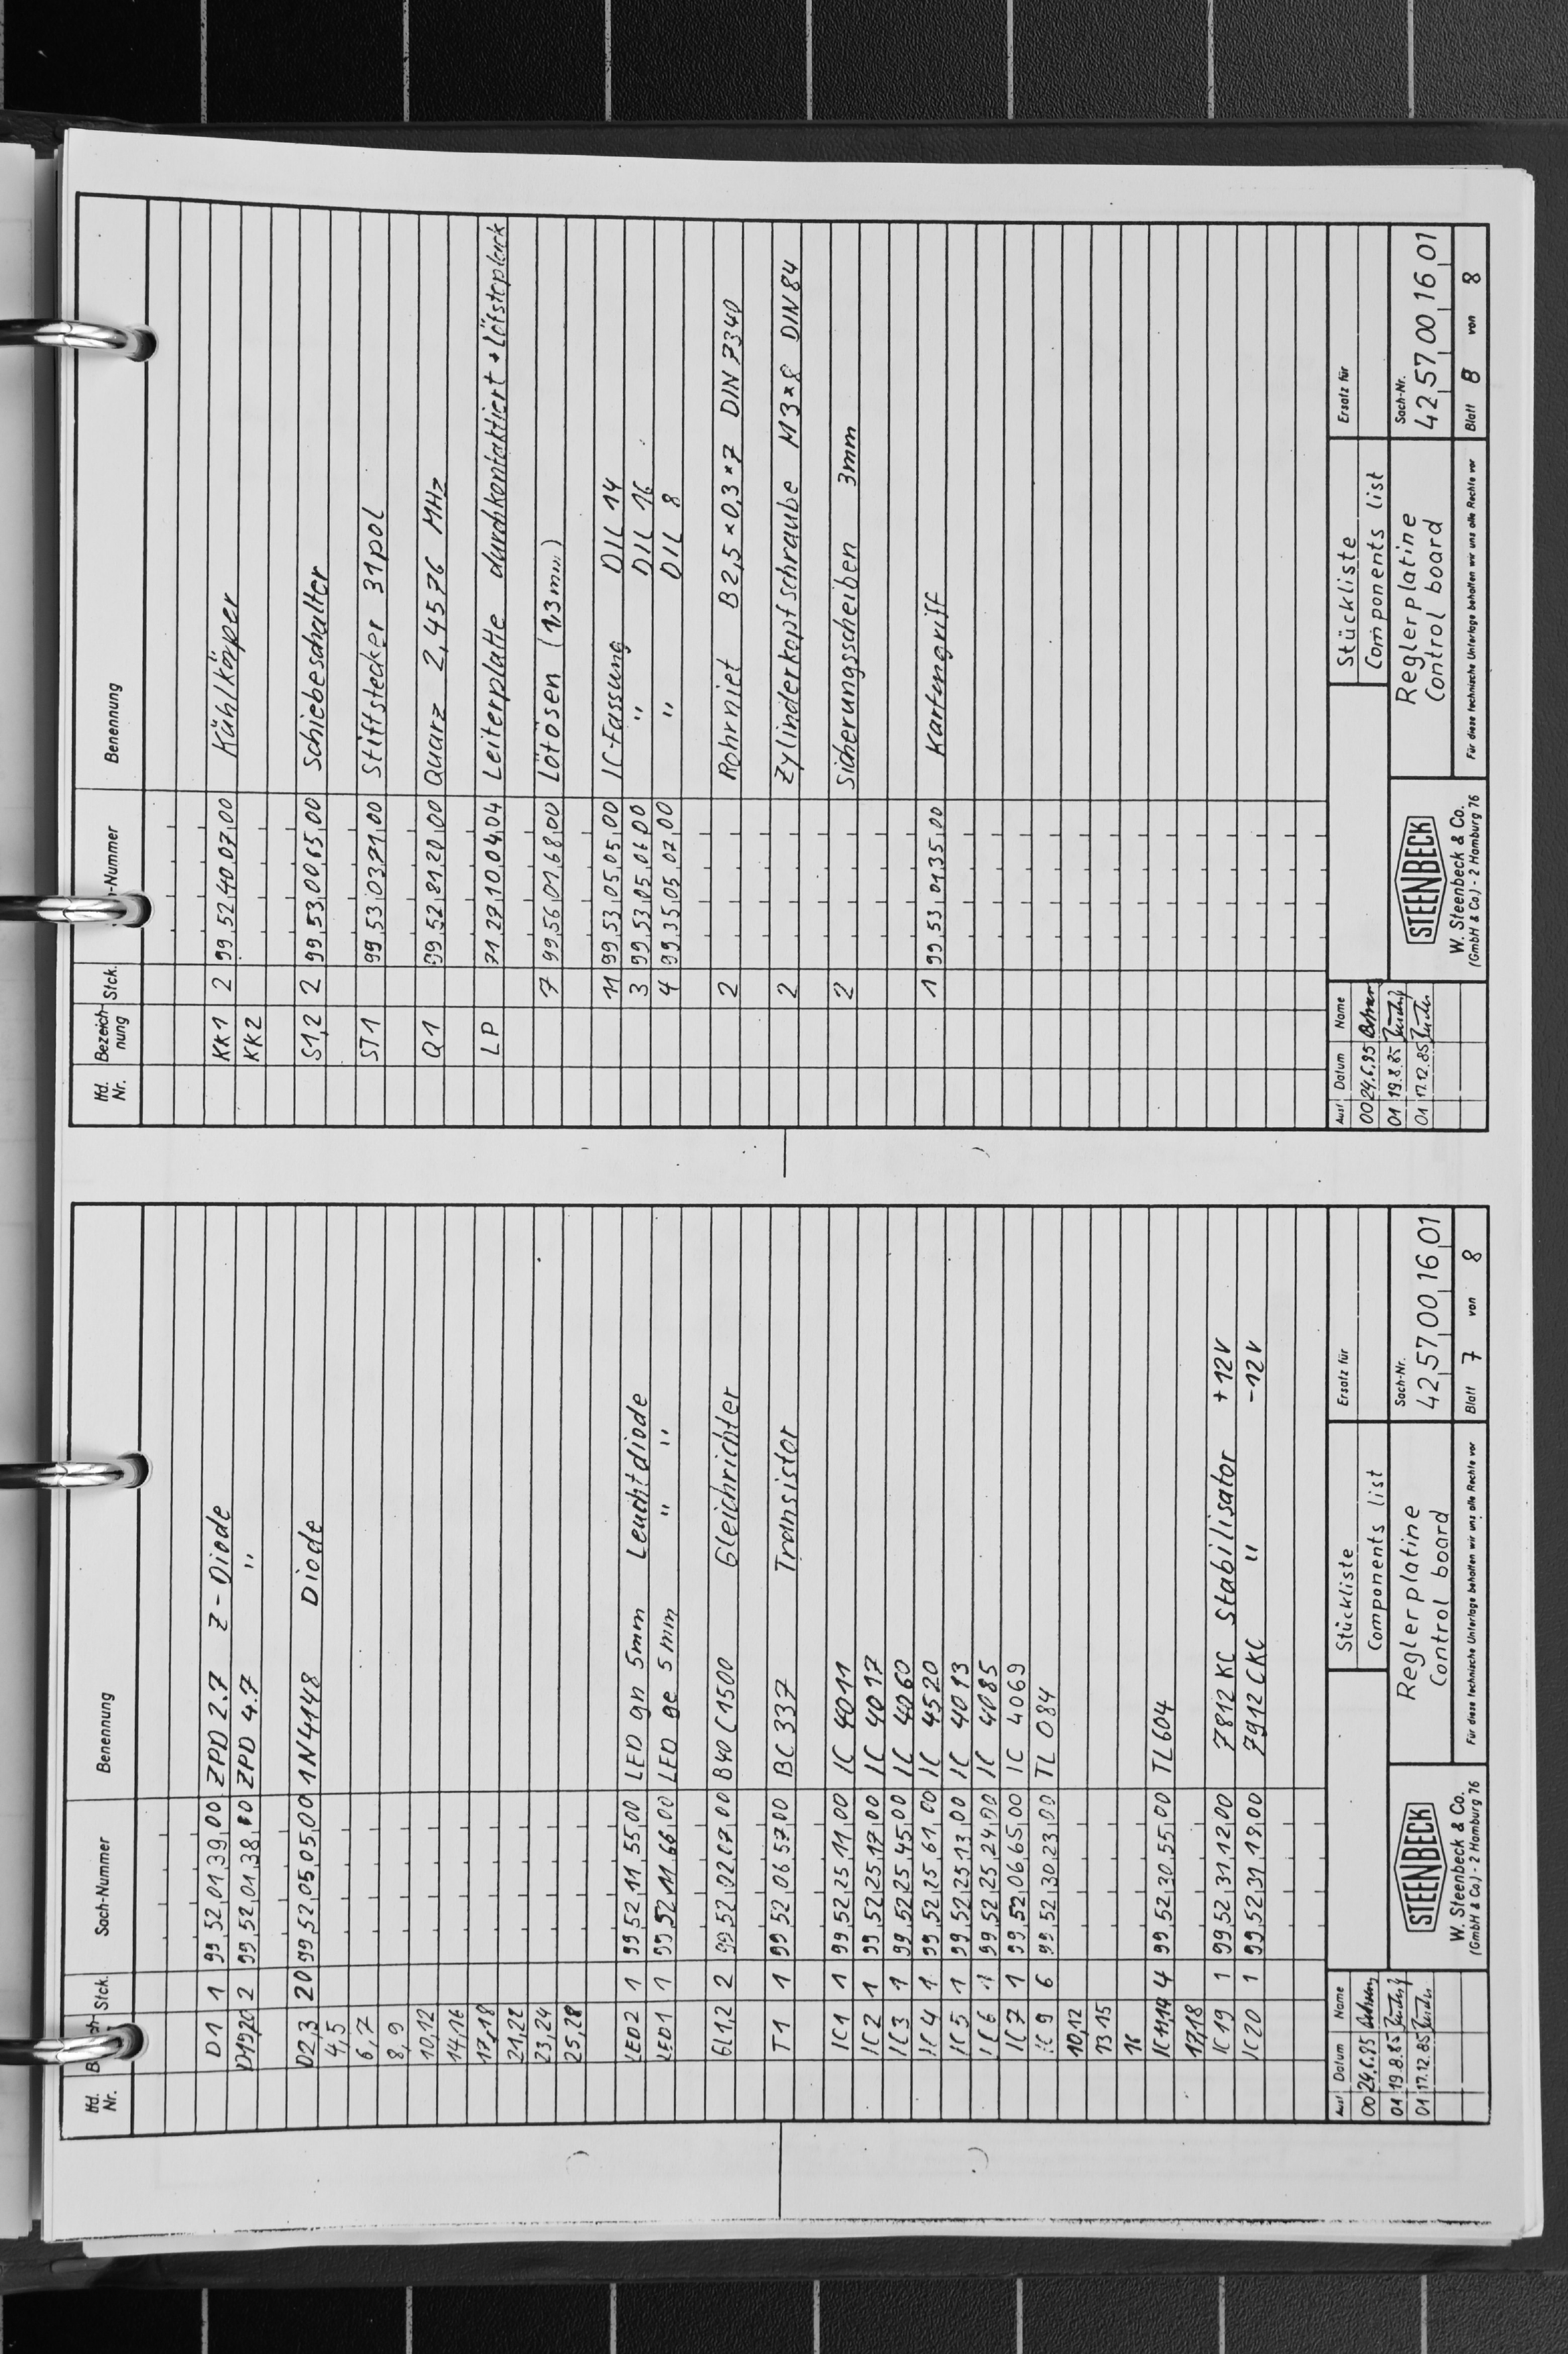 lfd. Nr. Stck. Sach-Nummer Benennung
D1 1 99,52,01,39,00 ZPD 2.7 Z-Diode
D19,20 2 99,52,01,38,00 ZPD 4.7 "
D2,3 20 99,52,05,05,00 1N4148 Diode
4,5
6,7
8,9
10,12
14,16
17,18
21,22
23,24
25,28
LED2 1 99,52,11,55,00 LED gn 5mm Leuchtdiode
LED1 1 99,52,11,66,00 LED ge 5mm " "
Gl1,2 2 99,52,02,07,00 B40C1500 Gleichrichter
T1 1 99,52,06,57,00 BC337 Transistor
IC1 1 99,52,25,11,00 IC 4011
IC2 1 99,52,25,17,00 IC 4017
IC3 1 99,52,25,45,00 IC 4060
IC4 1 99,52,25,61,00 IC 4520
IC5 1 99,52,25,13,00 IC 4013
IC6 1 99,52,25,24,00 IC 4085
IC7 1 99,52,06,65,00 IC 4069
IC9 6 99,52,30,23,00 TL084
10,12
13,15
16
IC11,14 4 99,52,30,55,00 TL604
17,18
IC19 1 99,52,31,12,00 7812KC Stabilisator +12V
IC20 1 99,52,31,19,00 7912CKC " -12V
Ausf Datum Name
00 24.6.85
01 19.8.85
01 17.12.85
STEENBECK
W. Steenbeck & Co.
(GmbH & Co.) - 2 Hamburg 76
Stückliste
Components list
Reglerplatine
Control board
Für diese technische Unterlage behalten wir uns alle Rechte vor
Ersatz für
Sach-Nr.
42,57,00,16,01
Blatt 7 von 8
lfd. Nr. Bezeichnung Stck. -Nummer Benennung
KK1 2 99,52,40,07,00 Kühlkörper
KK2
S1,2 2 99,53,00,65,00 Schiebeschalter
ST1 99,53,03,71,00 Stiftstecker 31pol
Q1 99,52,81,20,00 Quarz 2,4576 MHz
LP 71,27,10,04,04 Leiterplatte durchkontaktiert + Lötstoplack
7 99,56,01,68,00 Lötösen (1,3mm)
11 99,53,05,05,00 IC-Fassung DIL 14
3 99,53,05,06,00 " DIL 16
4 99,35,05,02,00 " DIL 8
2 Rohrniet B2,5×0,3×7 DIN 7340
2 Zylinderkopfschraube M3×8 DIN 84
2 Sicherungsscheiben 3mm
1 99,53,01,35,00 Kartengriff
Ausf Datum Name
00 24.6.85
01 19.8.85
01 17.12.85
STEENBECK
W. Steenbeck & Co.
(GmbH & Co.) - 2 Hamburg 76
Stückliste
Components list
Reglerplatine
Control board
Für diese technische Unterlage behalten wir uns alle Rechte vor
Ersatz für
Sach-Nr.
42,57,00,16,01
Blatt 8 von 8